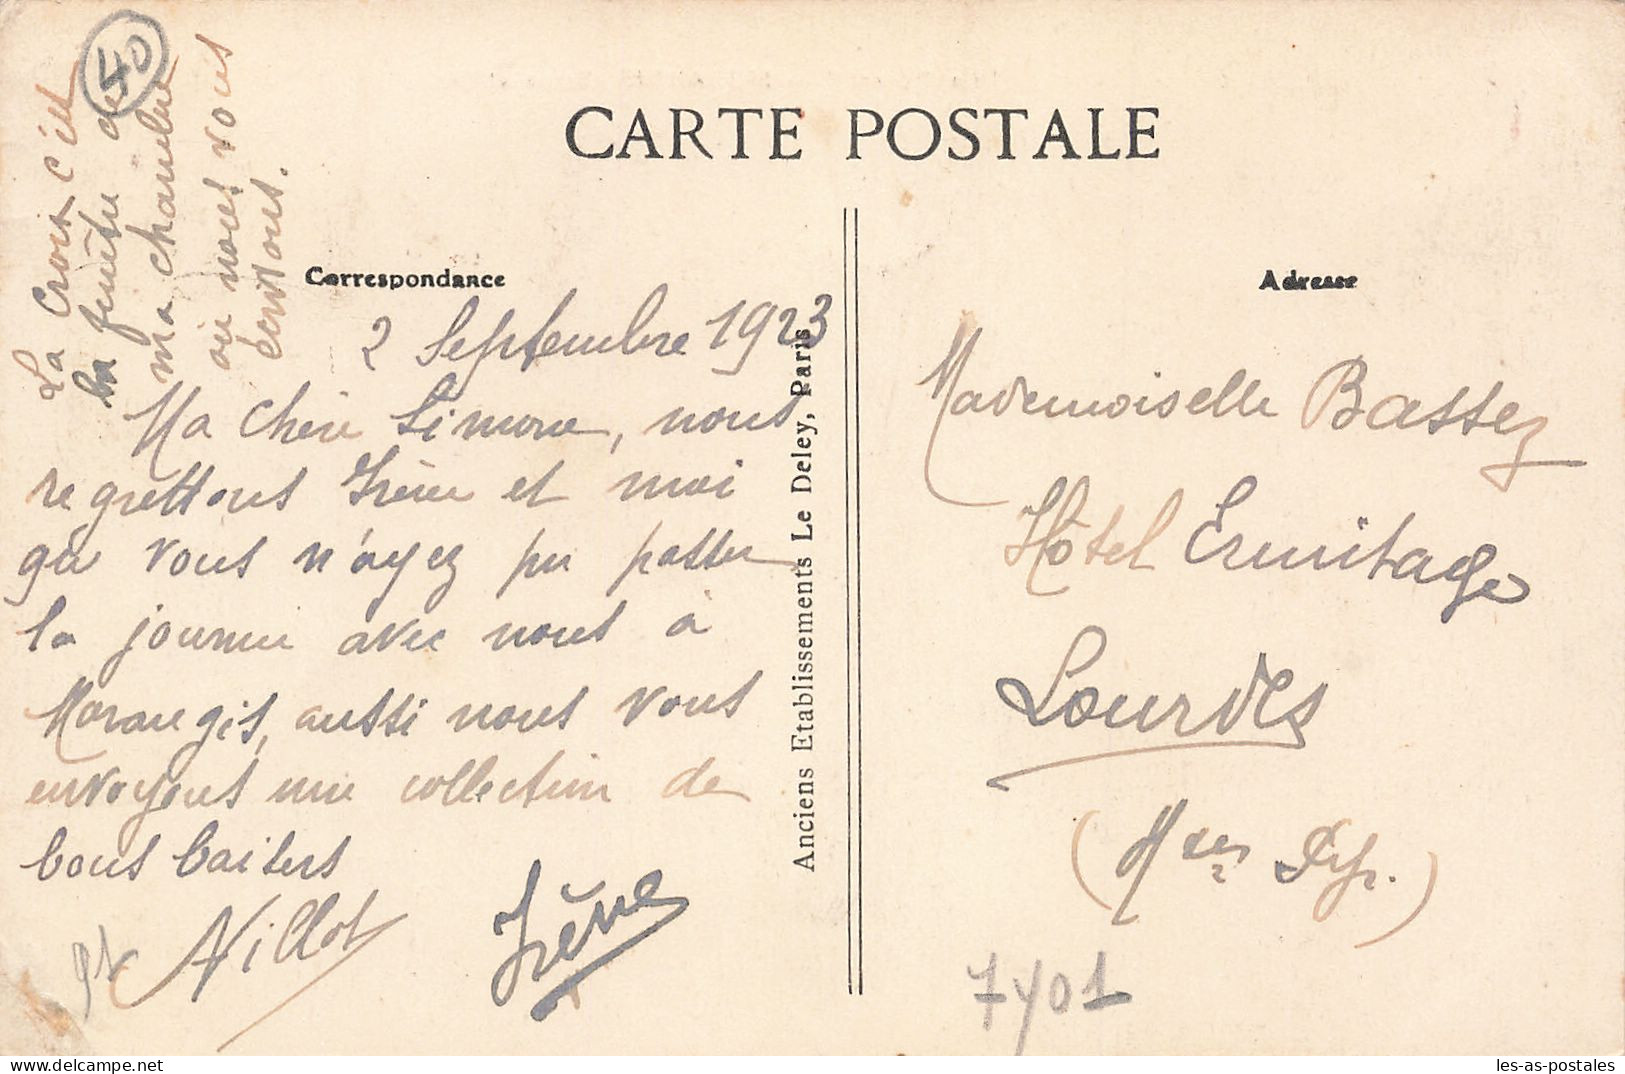 40
La Croix c'est
la fenêtre de
ma chambre
où nous vous
écrivons.
CARTE POSTALE
Correspondance
Adresse
2 Septembre 1923
Ma chère Simone, nous
regrettons Irène et moi
que vous n'ayez pu passer
la journée avec nous à
Morangis, aussi nous vous
envoyons une collection de
bons baisers
Irène
Anciens Etablissements Le Deley, Paris
Mademoiselle Bassez
Hôtel Ermitage
Lourdes
(Htes Pyr.)
7401
les-as-postales